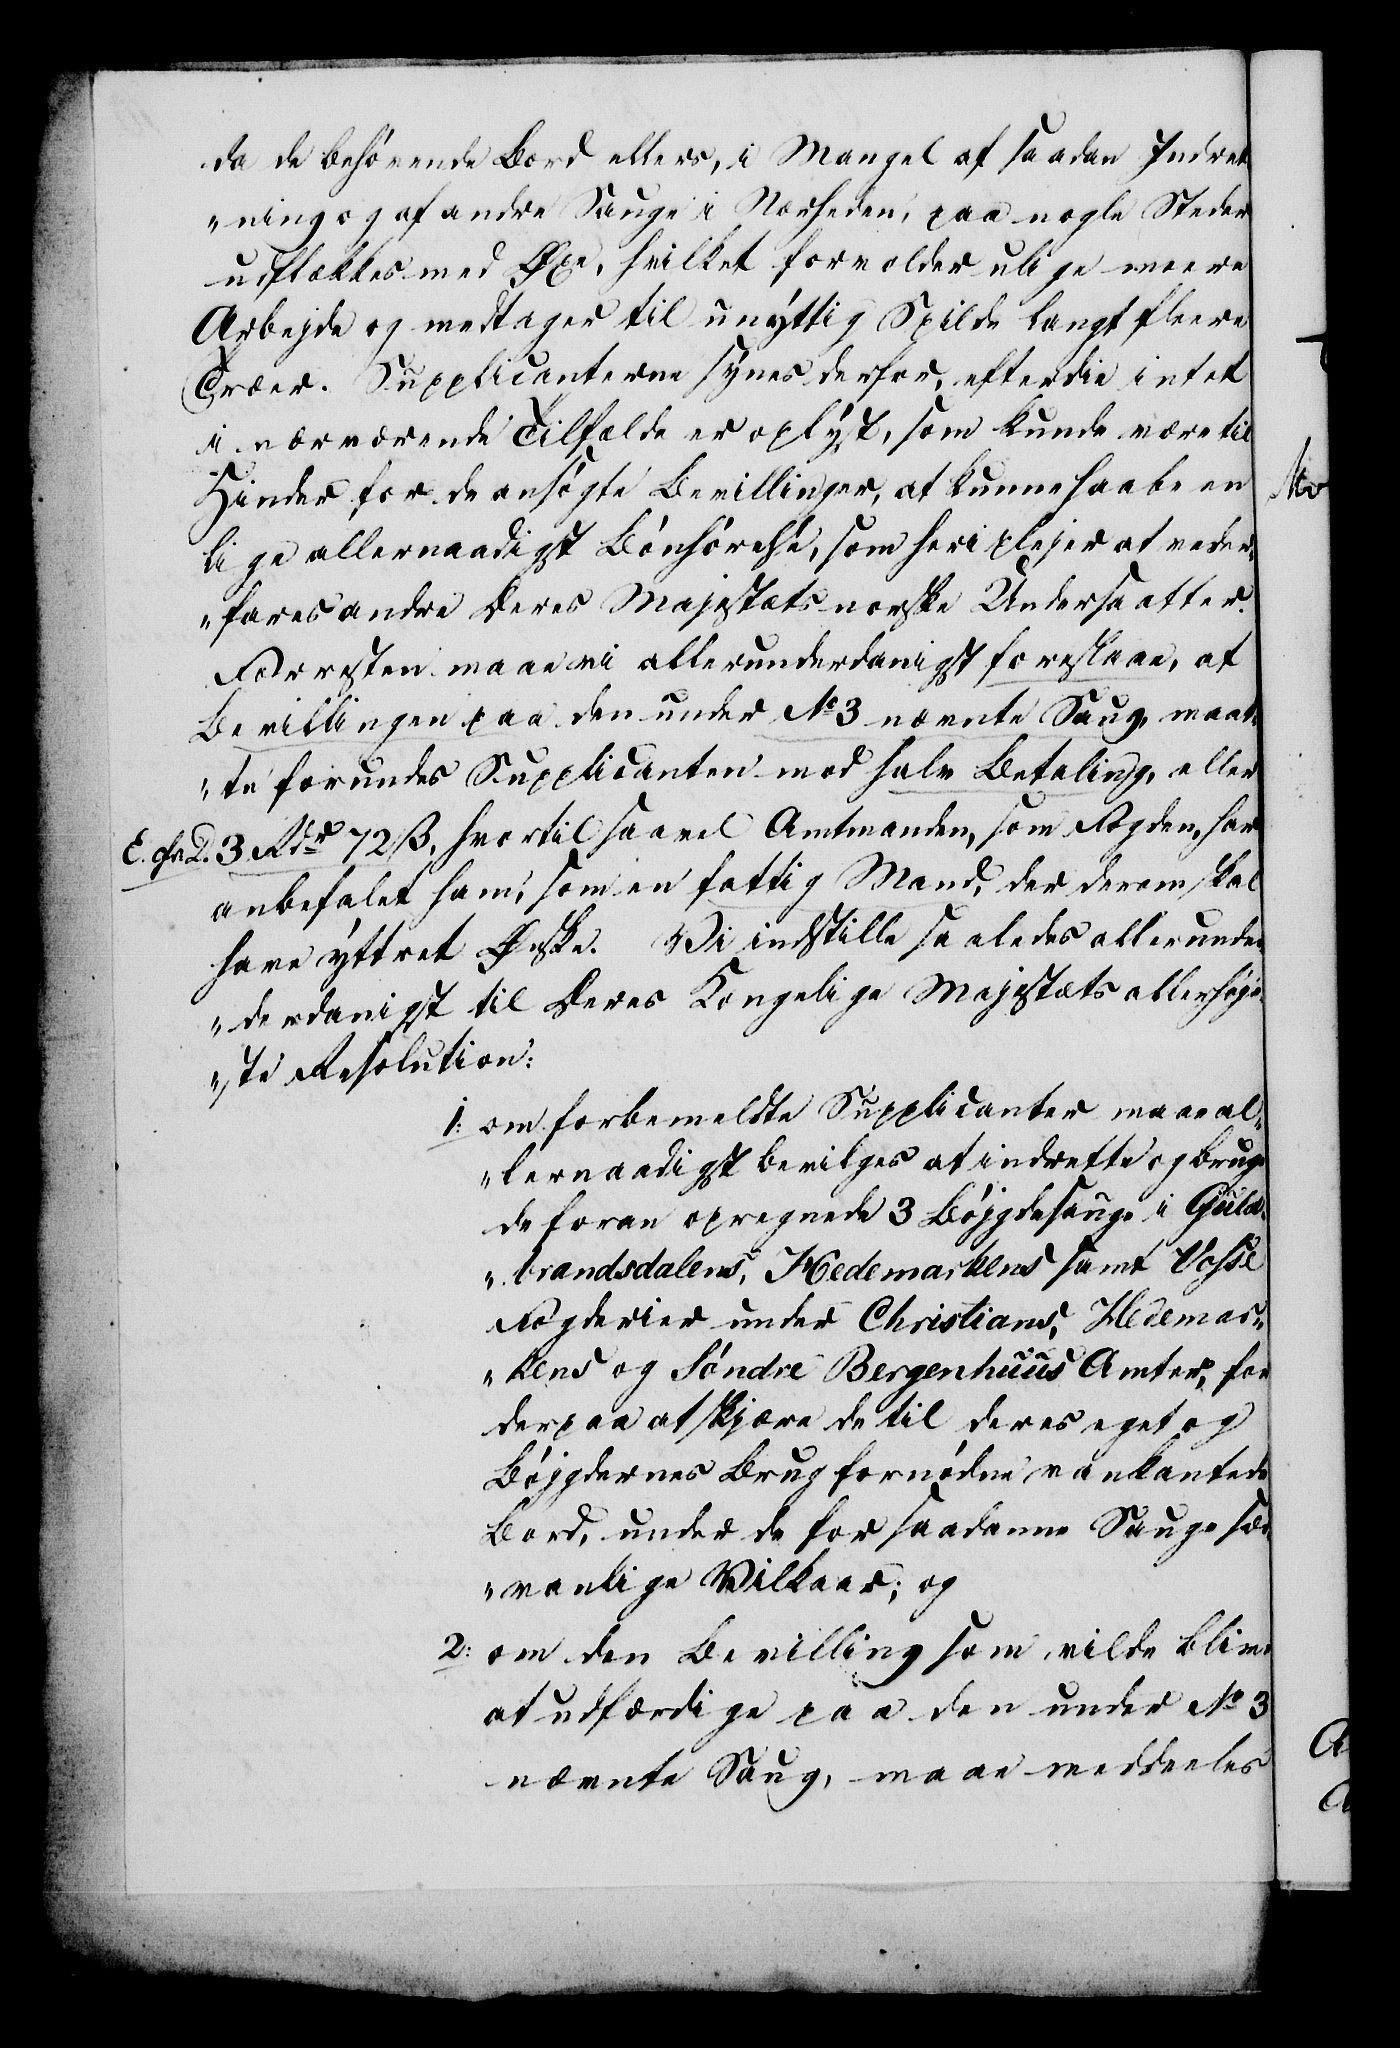 da de behövende Bord ellers, i Mangel af saadan Indret
"ning og af andre Sauge i Nærheden, paa nogle Steder
udflækkes med Øxe, hvilket forvolder ulige meere
Arbejde og medtager til unÿttig Spilde langt fleere
Træer. Supplicanterne sÿnes derfor, efterdie intet
i nærværende Tilfælde er oplÿst, som kunde være til
Hinder for de ansögte Bevillinger, at kunne haabe en
lige allernaadigst Bönhörelse, som heri plejer at veder„
"fares andre Deres Majestæts norske Undersaatter.
Forresten maae vi allerunderdanigst foreslaae, at
Bevillingen paa den under No 3 nævnte Saug, maat„
"te forundes Supplicanten mod halv Betaling, eller
3 Rdr 72 ß, hvortil saavel Amtmanden, som Fogden, har
anbefalet ham, som en fattig Mand, der derom skal
have ÿttret Ønske. Vi indstille saaledes allerunder
"derdanigst til Deres Kongelige Majestæts allerhöje„
"ste Resolution:
1: om forbemeldte Supplicanter maae al„
"lernaadigst bevilges at indrette og bruge
de foran opregnede 3 Böjgdesauge i Guld„
"brandsdalens, Hedemarkens samt Vosse
Fogderier under Christians, Hedemar„
"kens og Söndre Bergenhuus Amter, for
derpaa at skjære de til deres eget og
Böjgdernes Brug fornödne vankantede
Bord, under de for saadanne Sauge sæd
"vanlige Vilkaar; og
2: om den Bevilling som vilde blive
at udfærdige paa den under No 3
nævnte Saug, maae meddeeles